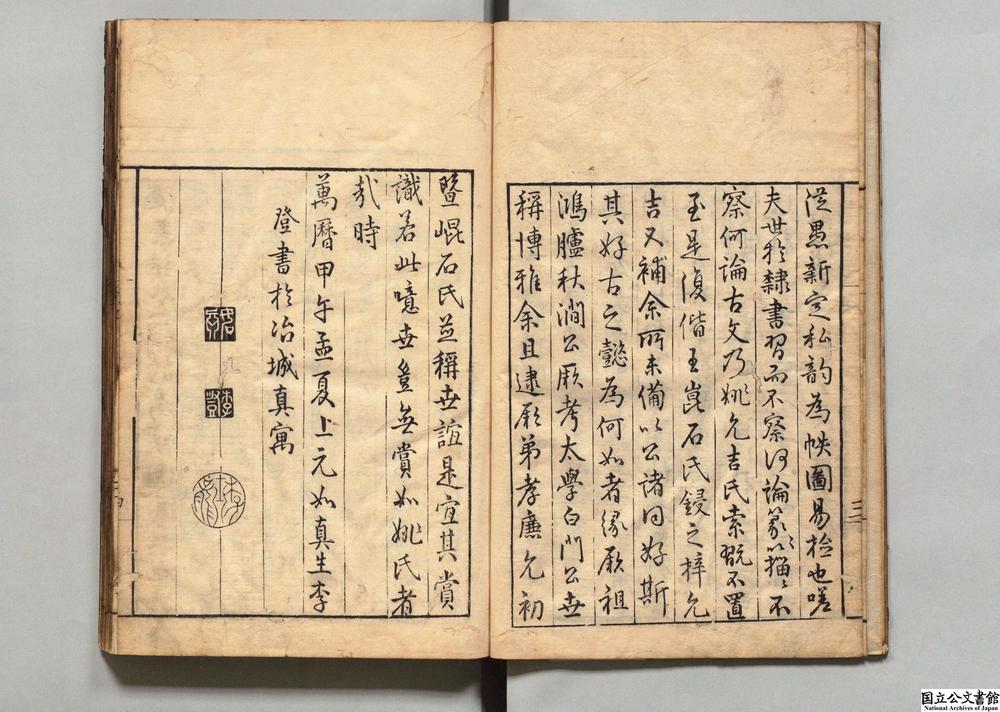 從愚新定私韵為帙圖易撿也嗟
夫世於隸書習而不察何論篆以籀籀不
察何論古文乃姚允吉氏索玩不置
至是復偕王崑石氏鋟之梓允
吉又補余所未備以公諸同好斯
其好古之懿為何如者緣厥祖
鴻臚秋澗公厥考太學白門公世
稱博雅余且逮厥弟孝廉允初
暨崐石氏並稱世誼是宜其賞
識若此噫世豈無賞如姚氏者
哉時
萬曆甲午孟夏上元如真生李
登書於冶城真寓
李登
三
国立公文書館
National Archives of Japan